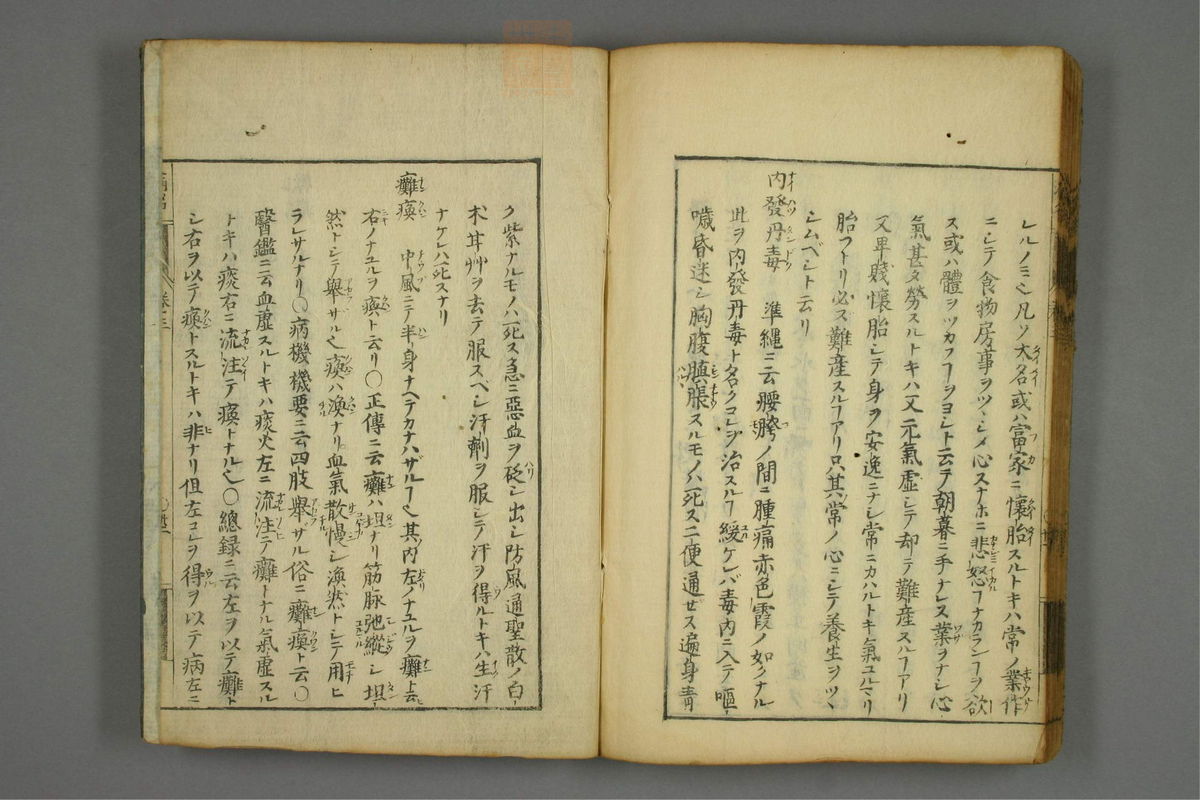 レルノミ也凡ソ大名或ハ富家ニ懷胎スルトキハ常ノ業作
ニシテ食物房事ヲツヽシメ心スナホニ悲怒ヿナカランヿヲ欲
ス或ハ體ヲツカフヲヨシト云テ朝暮ニ手ナレス業ヲナシ心
氣甚タ勞スルトキハ又元氣虚シテ却テ難産スルヿアリ
又卑賤懷胎シテ身ヲ安逸ニナシ常ニカハルトキ氣ユルマリ
胎フトリ必ス難産スルヿアリ只其常ノ心ニシテ養生ヲツヽ
シムベシト云リ
内發丹毒 準縄ニ云腰胯ノ間ニ腫痛赤色霞ノ如クナル
此ヲ内發丹毒ト名クコレヲ治スルヿ緩ケレバ毒内ニ入テ嘔
噦昏迷シ胸腹䐜脹スルモノハ死ス二便通ゼス遍身青
ク紫ナルモノハ死ス急ニ惡血ヲ砭シ出シ防風通聖散ノ白
朮耳艸ヲ去テ服スベシ汗劑ヲ服シテ汗ヲ得ルトキハ生汗
ナケレハ死スナリ
癱瘓 中風ニテ半身ナヘテカナハザルヿ也其内左ノナユルヲ癱ト云
右ノナユルヲ瘓ト云リ〇正傳ニ云癱ハ坦ナリ筋脉弛縱シ坦
然トシテ舉ザル也瘓ハ渙ナリ血氣散慢シ渙然トシテ用ヒ
ラレサルナリ〇病機機要ニ云四肢舉ザル俗ニ癱瘓ト云〇
醫鑑ニ云血虚スルトキハ痰火左ニ流注テ癱トナル氣虚スル
トキハ痰右ニ流注テ瘓トナル也〇總録ニ云左ヲ以テ癱ト
シ右ヲ以テ瘓トスルトキハ非ナリ但左コレヲ得ヲ以テ病左ニ